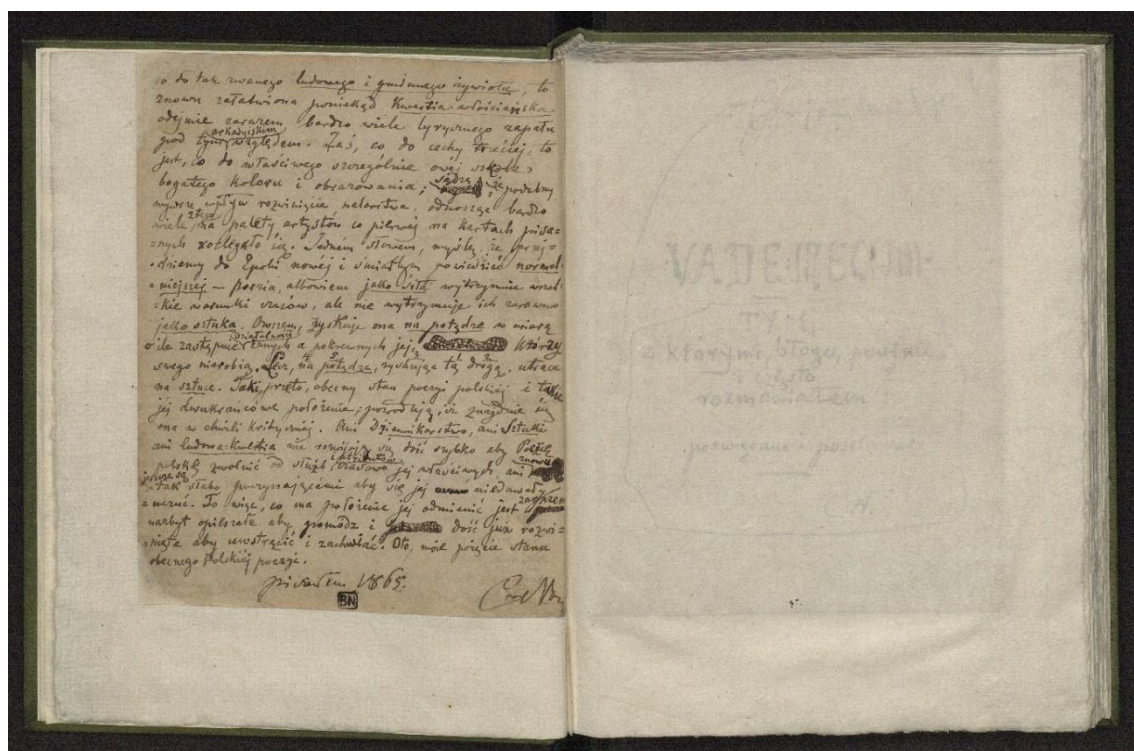 co do tak zwanego ludowego i gminnego żywiołu, to
znowu załatwiona poniekąd Kwestia-włościańska
odejmie zarazem bardzo wiele lyrycznego zapału
arkadyjskim
pod tym względem. Zaś, co do cechy trzeciéj, to
jest, co do właściwego szczególnie owej szkole
bogatego koloru i obrazowania; sądzę że podobny
wywrze wpływ rozwinięcie malarstwa, odnosząc bardzo
wiele na palety artystów co pierwéj na kartach pisa=
=nych rozlegało się. Jednem słowem, myślę, że przej=
=dziemy do Epoki nowéj i śmiałbym powiedzieć normal=
=niejszéj — poezia, albowiem jako siła wytrzymuie wszel=
=kie warunki czasów, ale nie wytrzymuje ich zarówno
jako sztuka. Owszem, zyskuje ona na potędze w miarę
działalności
o ile zastępuie a pokrewnych jej, którzy
swego nierobią. Lecz, na potędze, zyskując tą drogą, utraca
na sztuce. Taki, przeto, obecny stan poezyi polskiéj i takie
jéj dwukrańcowe położenie; powodują, iż znajduie się
ona w chwili krityczniéj. Ani Dziennikarstwo, ani Sztuki
ani ludowa-Kwestia nie rozwijają się dość szybko aby Poezię
polską zwolnić od służb czasowo jej właściwych, ani znowu
są tak słabo poczynającemi aby się jéj niedawały
=mierzać. To więc, co ma położenie jéj odmieniać jest zarazem
nazbyt opieszałe aby pomódz i dość już rozwi=
=nięte aby uwstrącić i zachwiać. Oto, móje pojęcie stanu
obecnego Polskiéj poezyi.
pisałem 1865.
BN
z którymi, błogo, poufnie
rozmawiałem